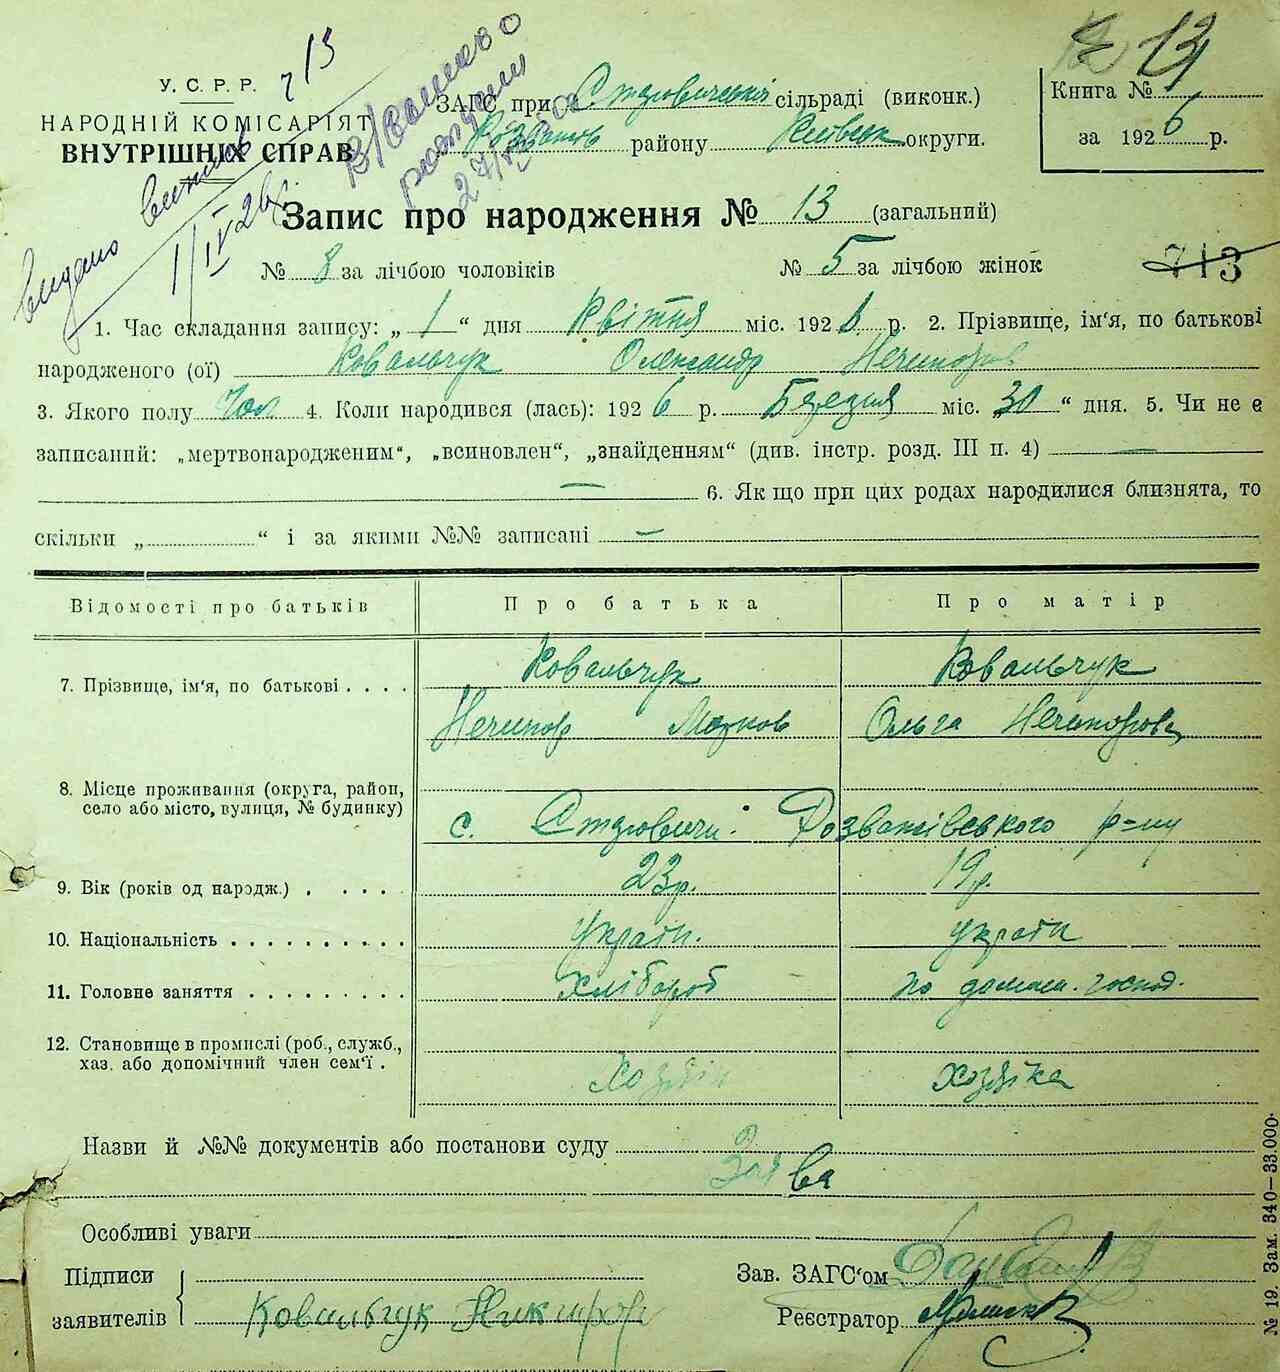 № 13
У. С. Р. Р. ч 13
ЗАГС при Старовичській сільраді (виконк.)
Книга №
НАРОДНІЙ КОМІСАРІЯТ
Розважів району Київськ округи.
за 1926 р.
ВНУТРІШНІХ СПРАВ
видано виписъ
1/IV 26
Запис про народження № 13 (загальний)
№ 8 за лічбою чоловіків № 5 за лічбою жінок
713
1. Час складання запису: „ 1 “ дня Квітня міс. 1926 р. 2. Прізвище, ім'я, по батькові
народженого (ої) Ковальчук Олександр Нечипоров
3. Якого полу Чол 4. Коли народився (лась): 1926 р. Березня міс. „30“ дня. 5. Чи не є
записаний: „мертвонародженим“, „всиновлен“, „знайденням“ (див. інстр. розд. III п. 4) —
— 6. Як що при цих родах народилися близнята, то
скільки „ “ і за якими №№ записані —
Відомості про батьків Про батька Про матір
7. Прізвище, ім'я, по батькові . . . . Ковальчук Ковальчук
Нечипор Марков Ольга Нечипорова
8. Місце проживання (округа, район,
село або місто, вулиця, № будинку)
с. Старовичи. Розважівського р-ну
9. Вік (років од нарэдж.) . . . . . 23р. 19р.
10. Національність . . . . . . . . . . Україн. україн
11. Головне заняття . . . . . . . . . Хлібороб по домаш. господ.
12. Становище в промислі (роб., служб.,
хаз. або допомічний член сем'ї . Хозяїн Хозяїка
Назви й №№ документів або постанови суду
Заява
Особливі уваги
Підписи
заявителів Ковальчук Никифор
Зав. ЗАГС'ом
Реєстратор
№ 19. Зам. 340—33.000.